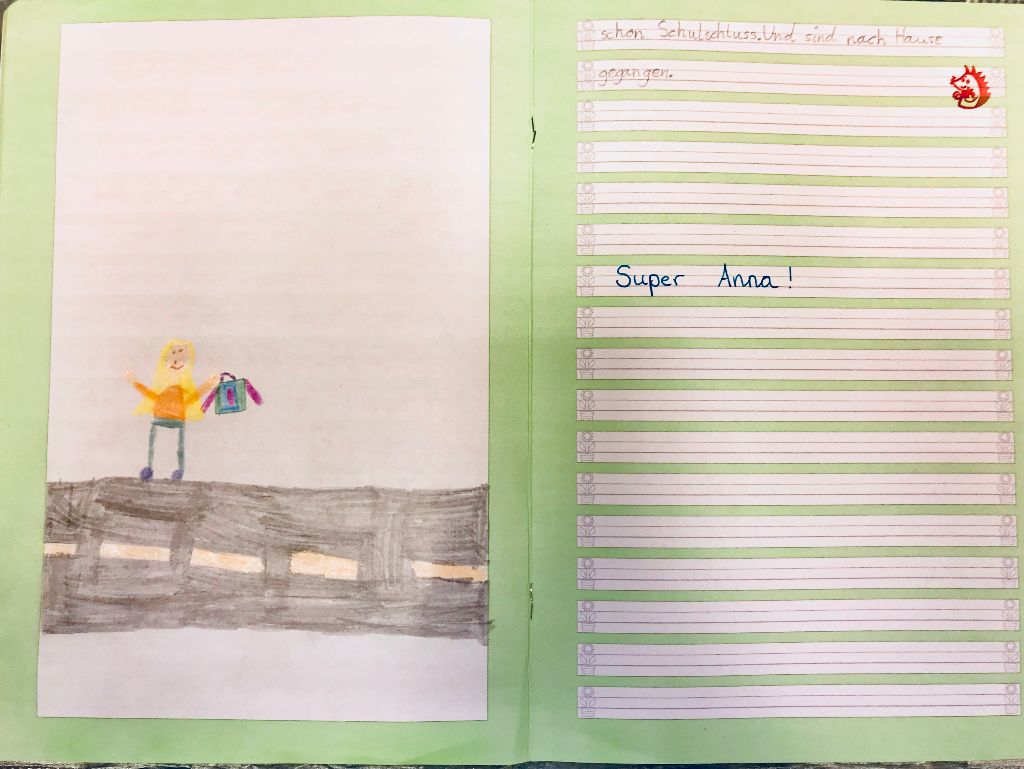 schon Schulschluss. Und sind nach Hause
gegangen.
Super Anna!